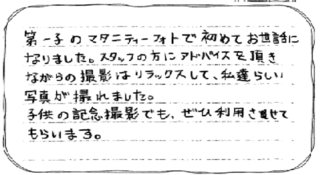 第一子のマタニティーフォトで初めてお世話に
なりました。スタッフの方にアドバイスを頂き
ながらの撮影はリラックスして、私達らしい
写真が撮れました。
子供の記念撮影でも、ぜひ利用させて
もらいます。